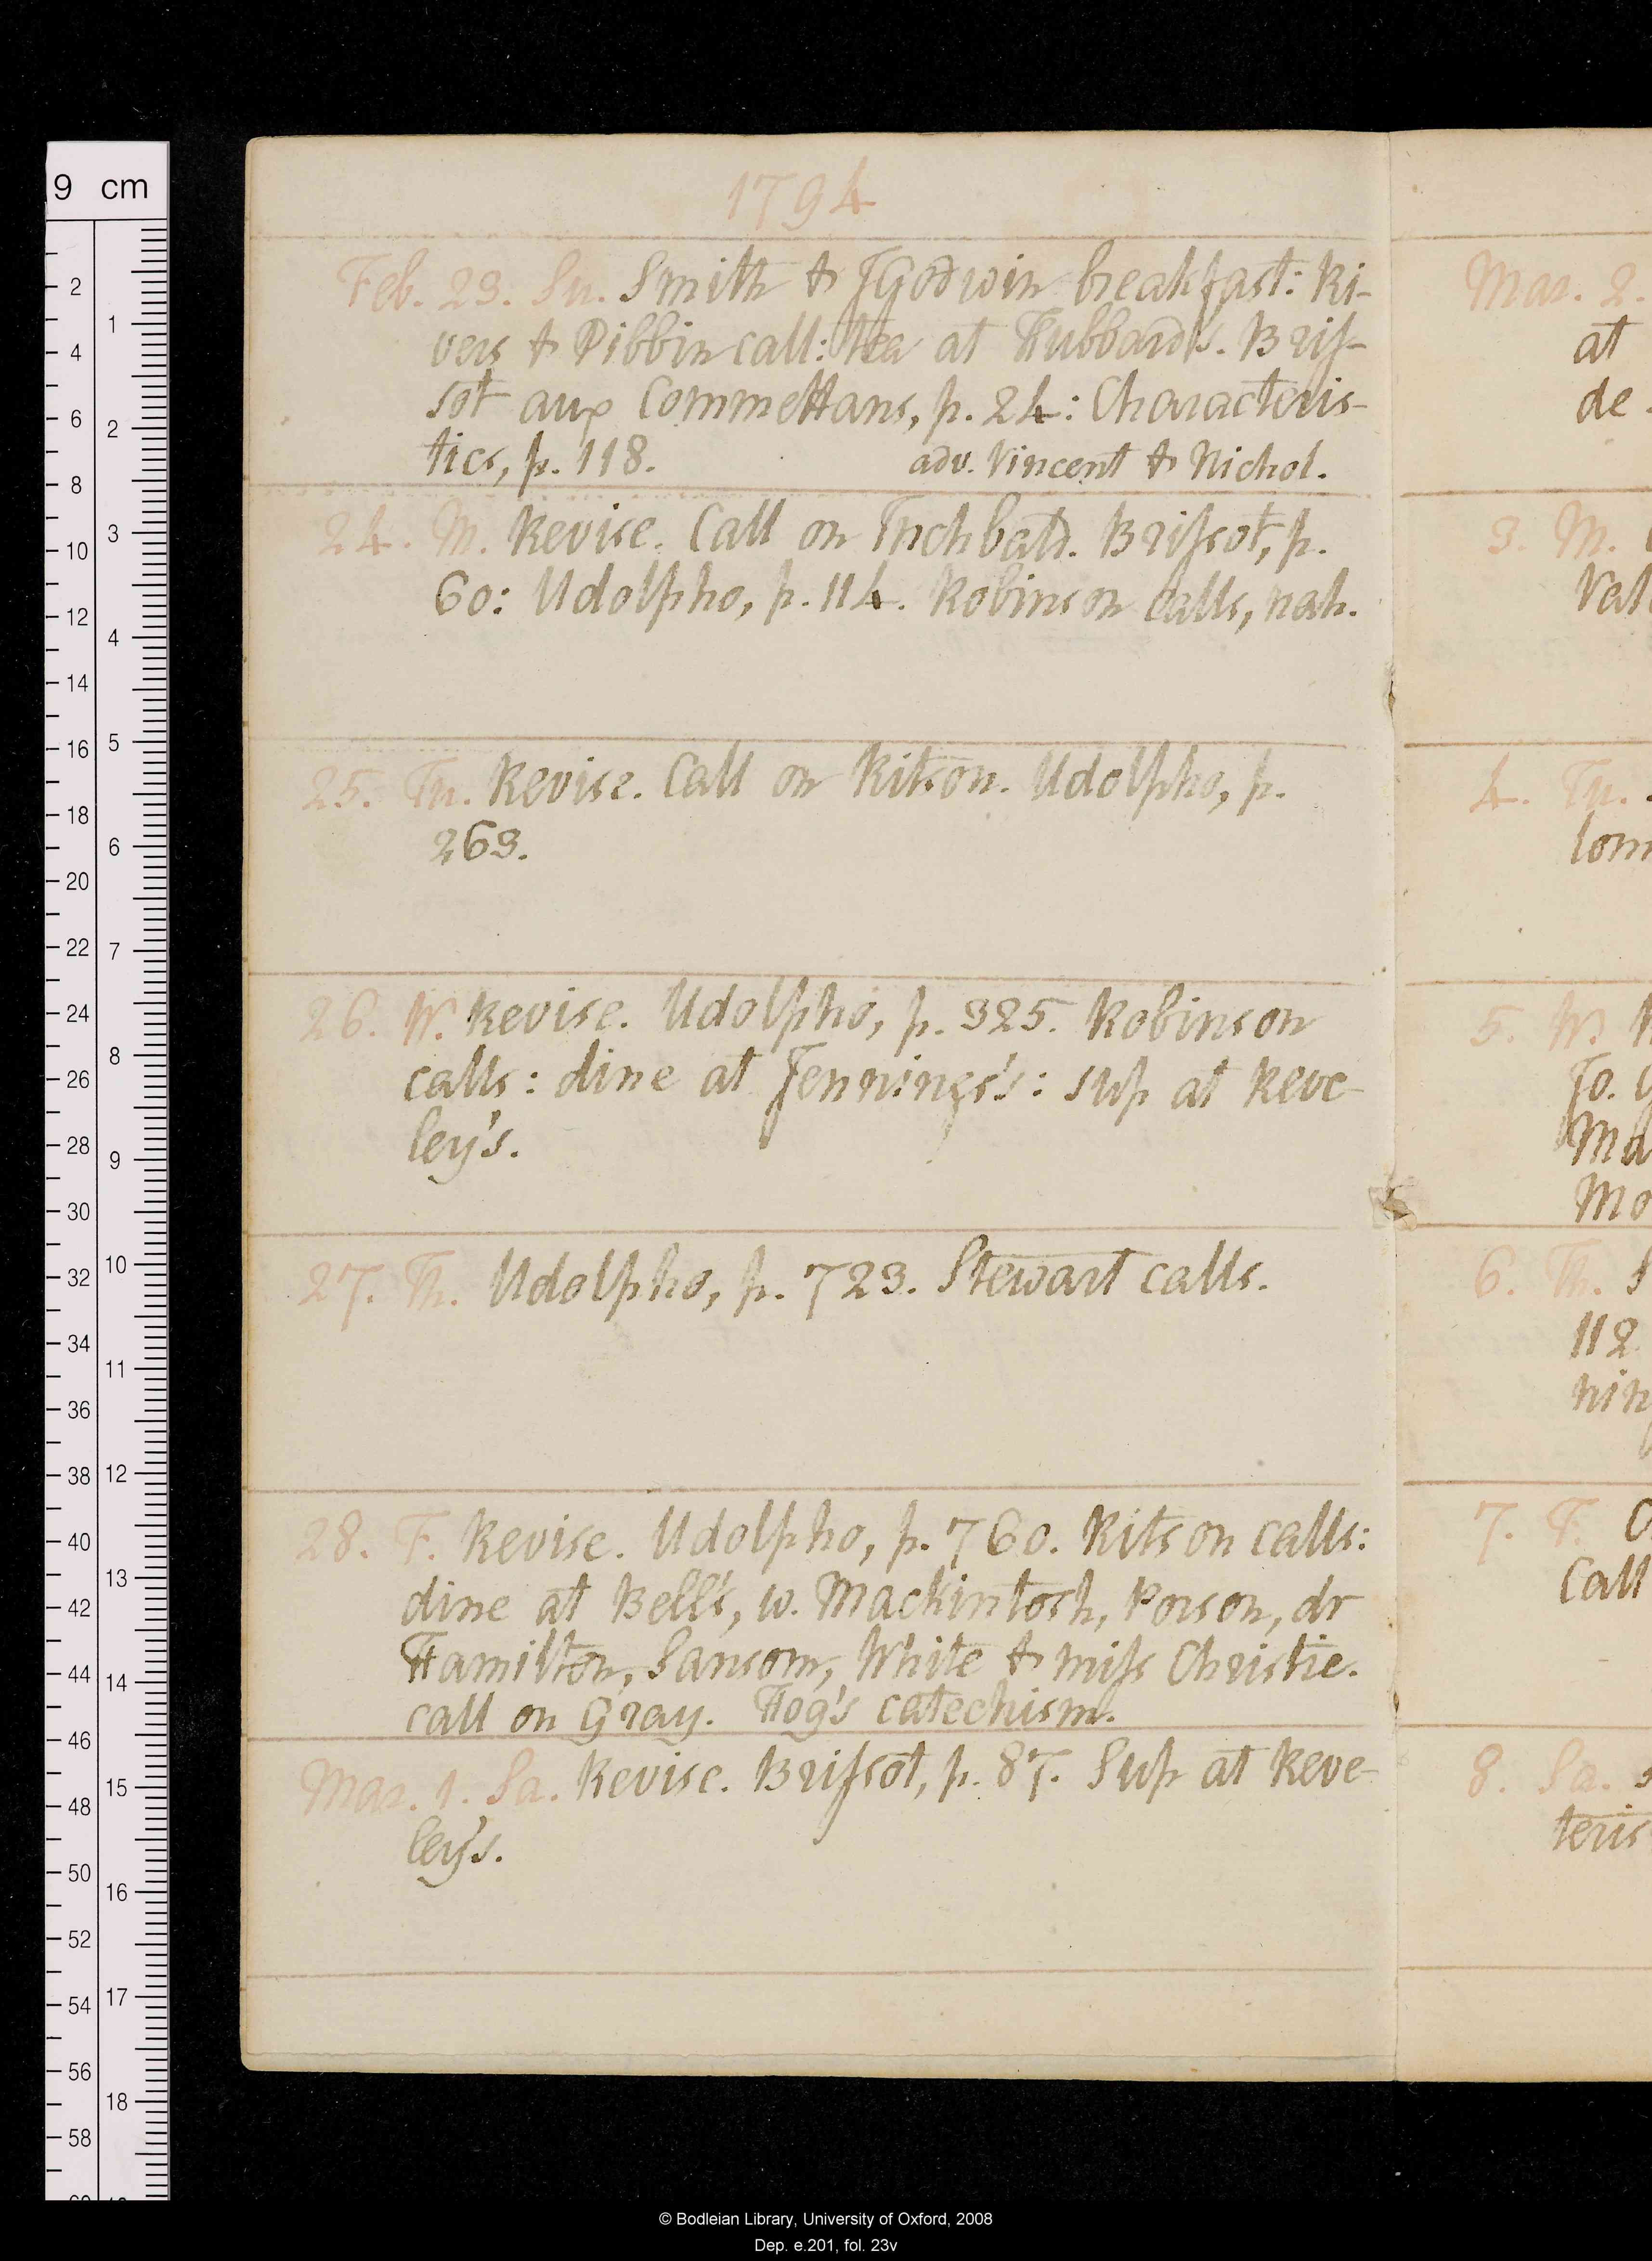 1794
Feb. 23. Su. Smith & JGodwin breakfast: Ri-
vers & Dibbin call: tea at Hubbard's. Bris-
sot aux Commettans, p. 24: Characteris-
tics, p. 118. adv. Vincent & Nichol.
24. M. Revise. Call on Inchbald. Brissot, p.
60: Udolpho, p. 114. Robinson calls, nah.
25. Tu. Revise. Call on Ritson. Udolpho, p.
263.
26. W. Revise. Udolpho, p. 325. Robinson
calls: dine at Jennings's: sup at Reve-
ley's.
27. Th. Udolpho, p. 723. Stewart calls.
28. F. Revise. Udolpho, p. 760. Ritson calls:
dine at Bell's, w. Mackintosh, Porson, dr
Hamilton, Sansom, White & miss Christie.
call on Gray. Hog's catechism.
Mar. 1. Sa. Revise. Brissot, p. 87. Sup at Reve-
ley's.
Mar. 2.
at
de
3. M.
4. Tu.
5. W.
Jo.
6. Th.
112
7. F.
Call
8. Sa.
teris
9 cm
2 4 6 8 10 12 14 16 18 20 22 24 26 28 30 32 34 36 38 40 42 44 46 48 50 52 54 56 58
1 2 3 4 5 6 7 8 9 10 11 12 13 14 15 16 17 18
© Bodleian Library, University of Oxford, 2008
Dep. e.201, fol. 23v